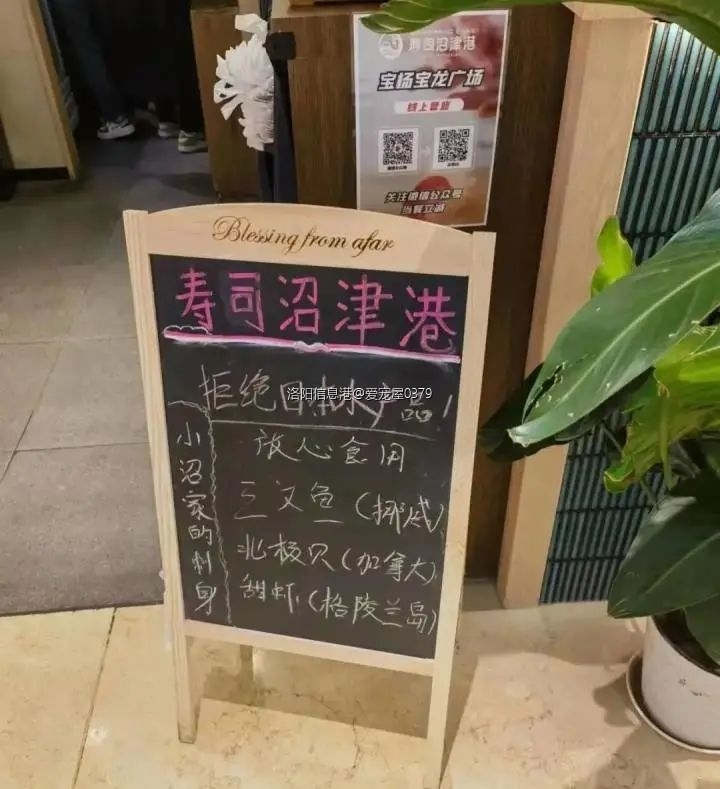 寿司沼津港
宝杨宝龙广场
线上登陆
关注微信公众号
当餐立减
Blessing from afar
寿司沼津港
拒绝日本水产品！
洛阳信息港@爱宠屋0379
小沼家的刺身
放心食用
三文鱼（挪威）
北极贝（加拿大）
甜虾（格陵兰岛）